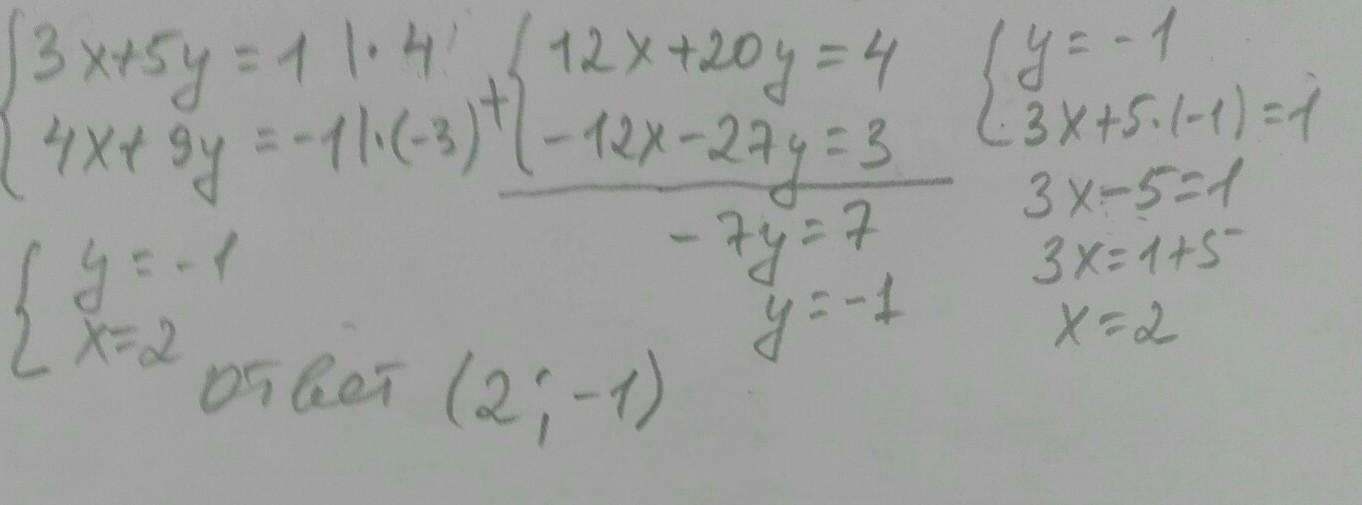 3x+5y=1 |·4
4x+9y=-1|·(-3)
+
12x+20y=4
-12x-27y=3
-7y=7
y=-1
y=-1
3x+5·(-1)=1
3x-5=1
3x=1+5
x=2
y=-1
x=2
ответ (2;-1)